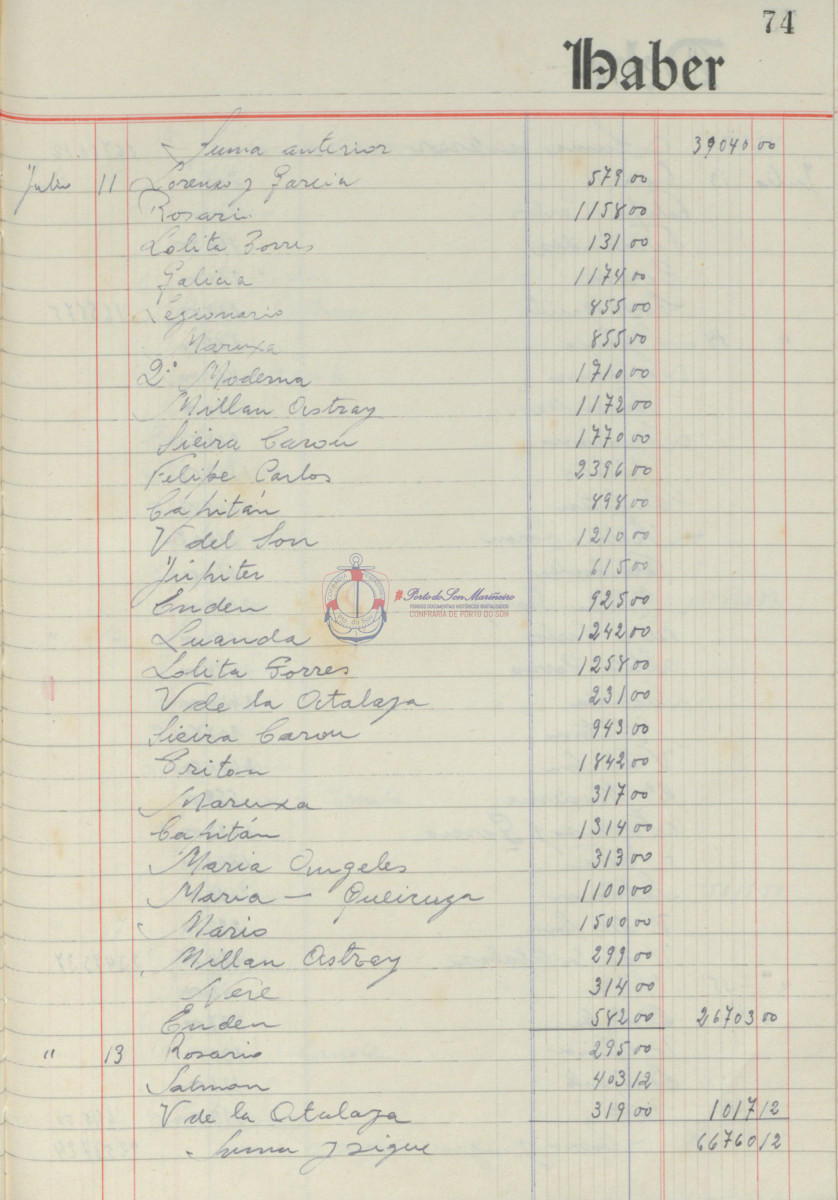 74
Haber
Suma anterior 39040 00
Julio 11 Lorenzo y Garcia 579 00
Rosario 1158 00
Lolita Torres 131 00
Galicia 1174 00
Legionario 855 00
Maruxa 855 00
2ª Moderna 1710 00
Millan Astray 1172 00
Sieira Carou 1770 00
Felipe Carlos 2396 00
Capitán 898 00
V del Son 1210 00
Júpiter 615 00
Enden 925 00
Luanda 1242 00
Lolita Torres 1258 00
V de la Atalaya 231 00
Sieira Carou 943 00
Triton 1842 00
Maruxa 317 00
Capitán 1314 00
Maria Angeles 313 00
Maria — Queiruga 1100 00
Mario 1500 00
Millan Astray 299 00
Nere 314 00
Enden 582 00 26703 00
" 13 Rosario 295 00
Salmon 403 12
V de la Atalaya 319 00 1017 12
Suma y sigue 66760 12
#PortodoSonMariñeiro
FONDOS DOCUMENTAIS HISTÓRICOS DIXITALIZADOS
CONFRARÍA DE PORTO DO SON